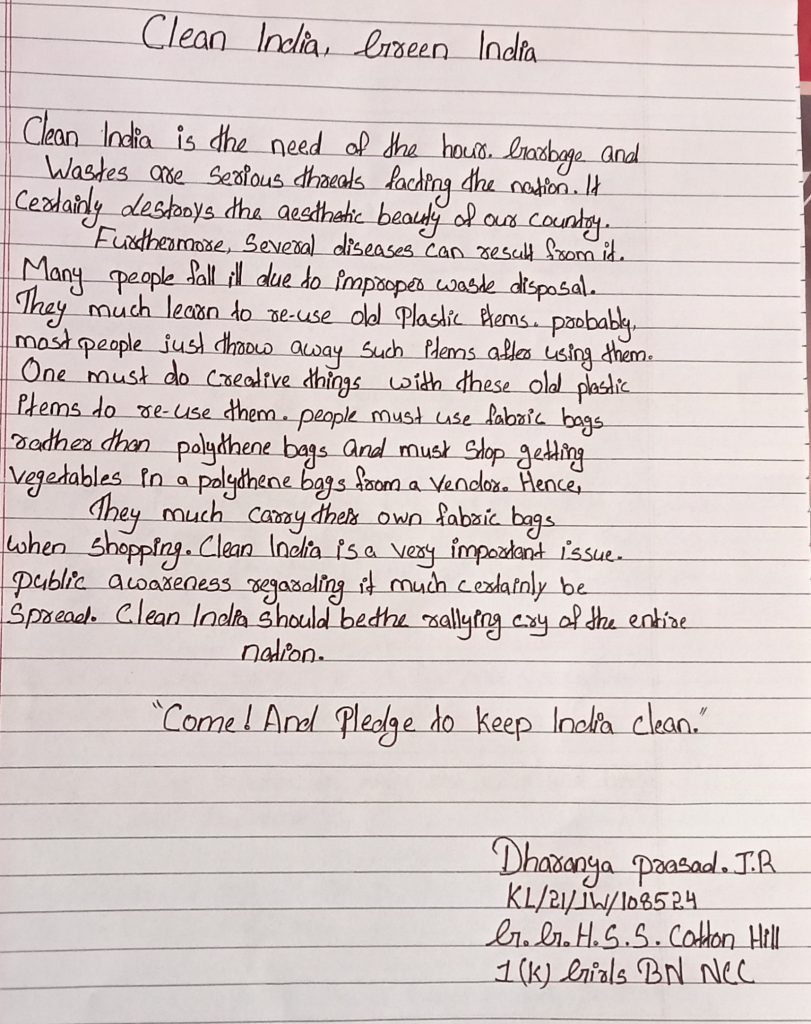 Clean India, Green India
Clean India is the need of the hour. Garbage and
Wastes are serious threats facting the nation. It
Certainly destroys the aesthetic beauty of our country.
Furthermore, Several diseases can result from it.
Many people fall ill due to improper waste disposal.
They much learn to re-use old Plastic items. probably,
most people just throw away such items after using them.
One must do creative things with these old plastic
items to re-use them. people must use fabric bags
rather than polythene bags and must stop getting
vegetables in a polythene bags from a vendor. Hence,
They much carry their own fabric bags
when shopping. Clean India is a very important issue.
public awareness regarding it much certainly be
Spread. Clean India should be the rallying cry of the entire
nation.
"Come! And Pledge to keep India clean."
Dharanya prasad. J.R
KL/21/JW/108524
G. G. H. S. S. Cotton Hill
1 (K) Girls BN NCC